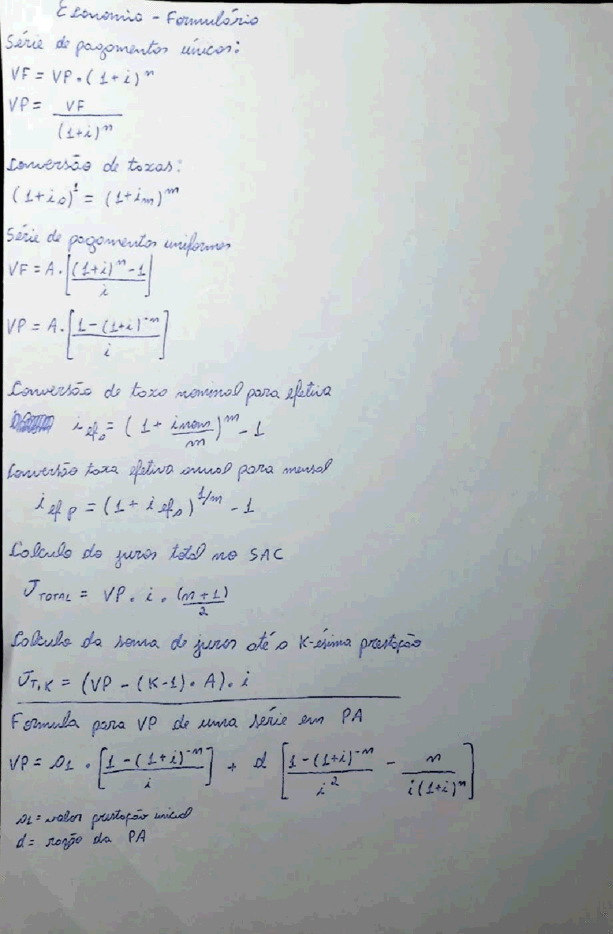 Economia - Formulário
Série de pagamentos únicos:
VF = VP . (1+i)^n
VP = VF / (1+i)^n
Conversão de taxas:
(1+i_a)^1 = (1+i_m)^m
Série de pagamentos uniformes
VF = A . [((1+i)^n - 1) / i]
VP = A . [(1 - (1+i)^-n) / i]
Conversão de taxa nominal para efetiva
i_efa = (1 + inom / m)^m - 1
Conversão taxa efetiva anual para mensal
i_ef p = (1 + i_efa)^1/m - 1
Calculo do juros total no SAC
J_TOTAL = VP . i . (n+1) / 2
Calculo da soma de juros até a K-ésima prestação
J_T,K = (VP - (K-1) . A) . i
Formula para VP de uma série em PA
VP = a1 . [(1 - (1+i)^-n) / i] + d [(1 - (1+i)^-n) / i^2 - n / (i(1+i)^n)]
a1 = valor prestação inicial
d = razão da PA